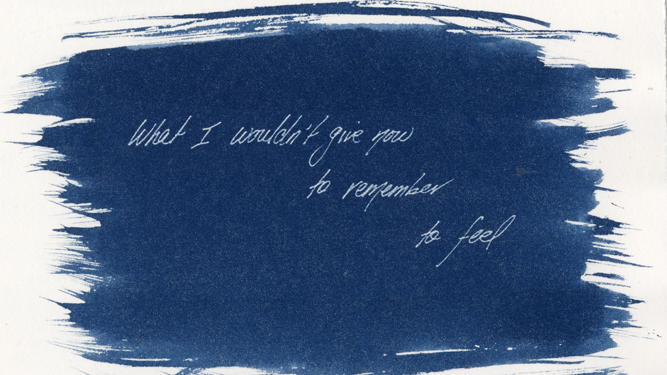 What I wouldn't give now
to remember
to feel